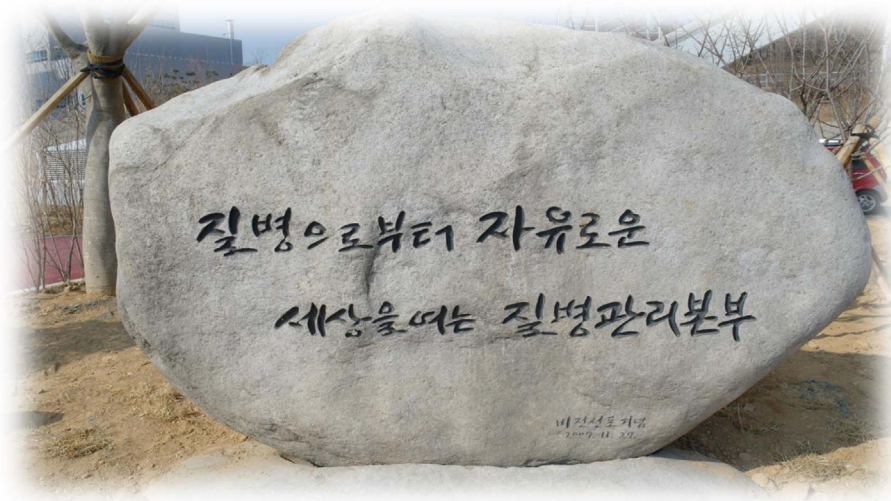 질병으로부터 자유로운
세상을 여는 질병관리본부
비전선포기념
2007. 11. 27